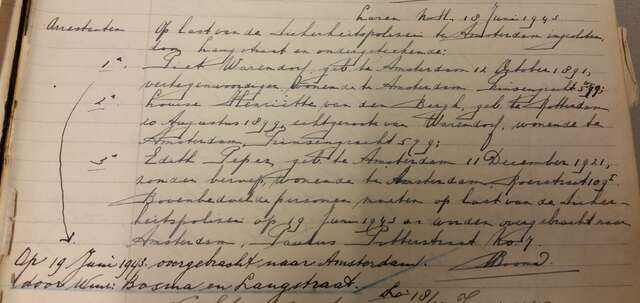 Laren N.H. 18 Juni 1943
Arrestanten Op last van de Sicherheitspolizei te Amsterdam ingesloten
door Langstraat en ondergeteekende:
1e. Piet Warendorf, geb. te Amsterdam 12 October 1891,
vertegenwoordiger, wonende te Amsterdam, Prinsengracht 579;
2e. Louise Henriëtte van den Bergh, geb. te Rotterdam
20 Augustus 1899, echtgenoote van Warendorf, wonende te
Amsterdam, Prinsengracht 579;
3e Edith Peper, geb. te Amsterdam 11 December 1921,
zonder beroep, wonende te Amsterdam, Roerstraat 109 I.
Bovenbedoelde personen moeten op last van de Sicher-
heitspolizei op 19 Juni 1943 worden overgebracht naar
Amsterdam, Paulus Potterstraat No. 4.
Op 19 Juni 1943. overgebracht naar Amsterdam.
door Wmr. Bosma en Langstraat.